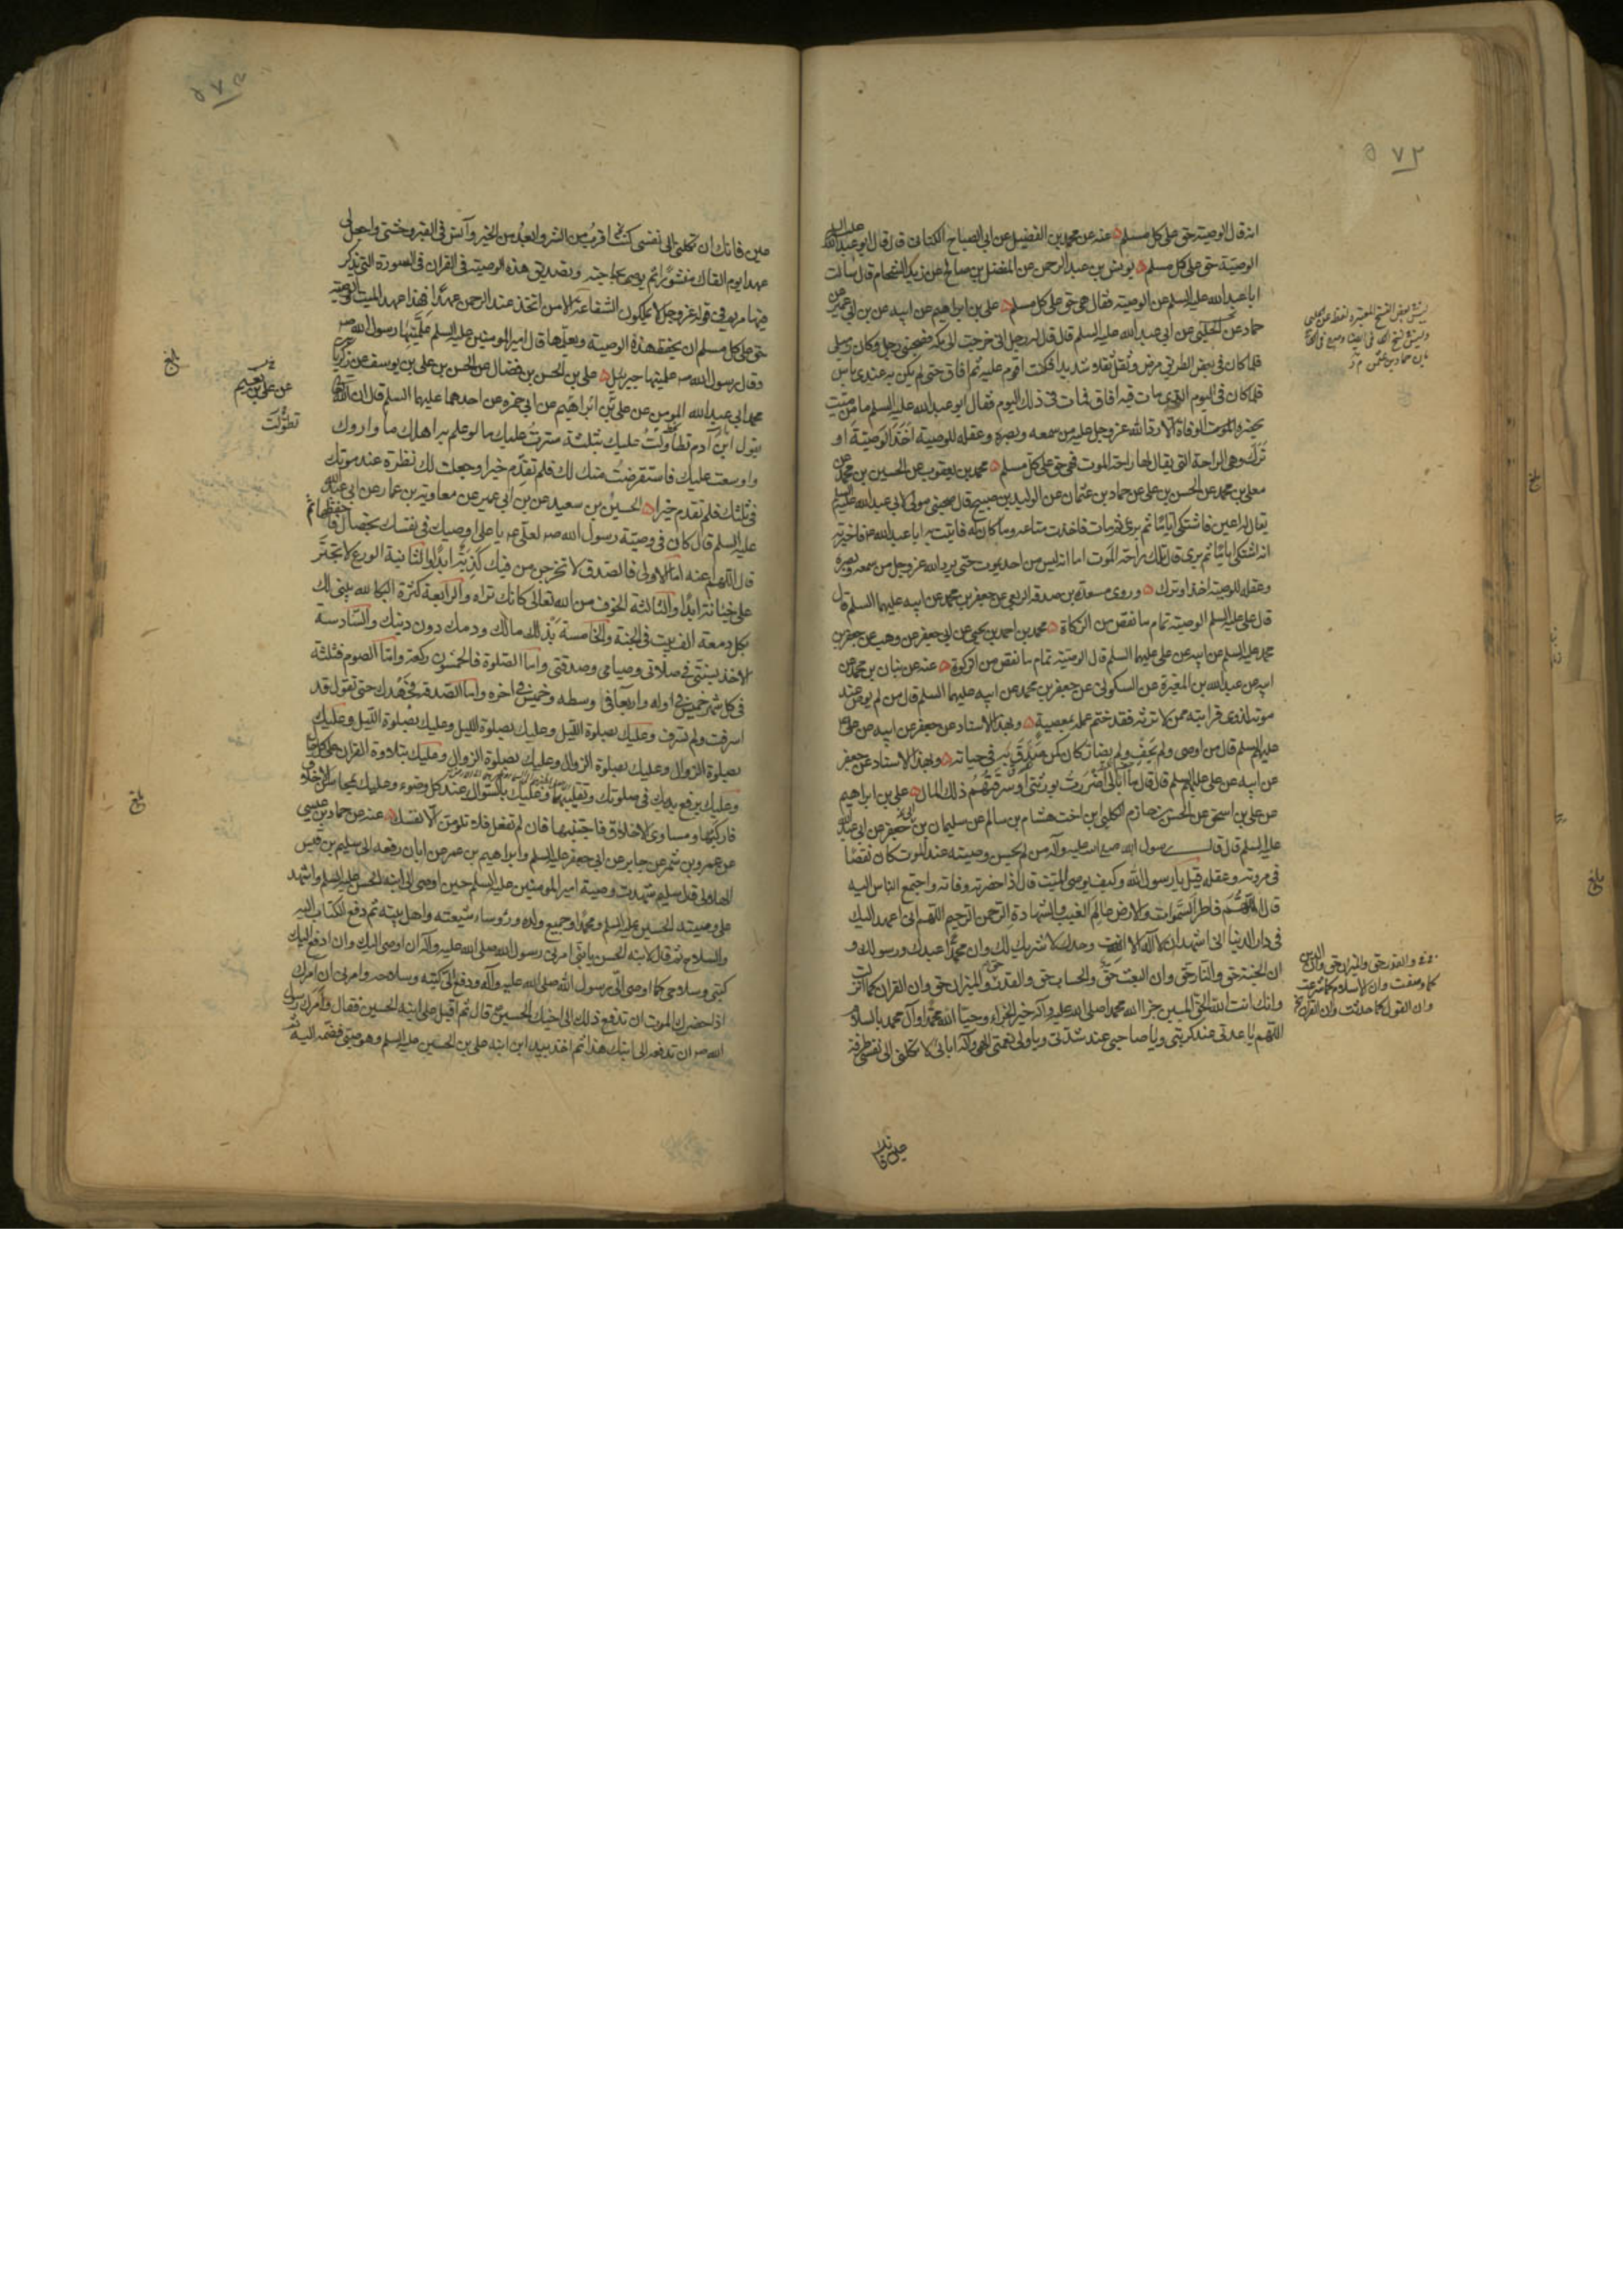 ٥٧٢
انه قال الوصية حق على كل مسلم عنه عن محمد بن الفضيل عن ابى الصباح الكنانى قال قال ابو عبدالله عليه السلم
الوصية حق على كل مسلم يونس بن عبد الرحمن عن المفضل بن صالح عن زيد الشحام قال سألت
ابا عبد الله عليه السلم عن الوصية فقال هى حق على كل مسلم على بن ابراهيم عن ابيه عن بن ابى عمير عن
حماد عن الحلبى عن ابى عبد الله عليه السلم قال قال له رجل انى خرجت الى مكة فصحبنى رجل وكان زميلى
فلما كان فى بعض الطريق مرض وثقل ثقلا شديدا فكنت اقوم عليه ثم افاق حتى لم يكن به عندى باس
فلما كان فى اليوم الذى مات فيه افاق فمات فى ذلك اليوم فقال ابو عبد الله عليه السلم ما من ميت
يحضره الموت الوفاة الا رد الله عز وجل عليه من سمعه وبصره وعقله للوصية اخذ الوصية او
ترك وهى الراحة التى يقال لها راحة الموت فهى حق على كل مسلم محمد بن يعقوب عن الحسين بن محمد عن
معلى بن محمد عن الحسن بن على عن حماد بن عثمان عن الوليد بن صبيح قال صحبنى مولى لابى عبد الله عليه السلم
يقال له اعين فاشتكى اياما ثم برئ ثم مات فاخذت متاعه وما كان له فاتيت به ابا عبد الله ع فاخبرته
انه اشتكى اياما ثم برئ قال تلك راحة الموت اما انه ليس من احد يموت حتى يرد الله عز وجل من سمعه وبصره
وعقله للوصية اخذ او ترك وروى مسعدة بن صدقة الربعى عن جعفر بن محمد عن ابيه عليهما السلم قال
قال على عليه السلم الوصية تمام ما نقص من الزكاة محمد بن احمد بن يحيى عن ابى جعفر عن وهب عن جعفر بن
محمد عليه السلم عن ابيه عن على عليهما السلم قال الوصية تمام ما نقص من الزكوة عنه عن بنان بن محمد عن
ابيه عن عبد الله بن المغيرة عن السكونى عن جعفر بن محمد عن ابيه عليهما السلم قال من لم يوص عند
موته لذوى قرابته ممن لا يرثه فقد ختم عمله بمعصية وبهذا الاسناد عن جعفر عن ابيه عن على
عليهم السلم قال من اوصى ولم يحف ولم يضار كان كمن صدق به فى حياته وبهذا الاسناد عن جعفر
عن ابيه عن على عليهم السلم قال قال ما ابالى اضررت بورثتى او سرقتهم ذلك المال على بن ابراهيم
عن على بن اسحق عن الحسن بن حازم الكلبى ابن اخت هشام بن سالم عن سليمان بن جعفر عن ابى عبد الله
عليه السلم قال قال رسول الله صلى الله عليه وآله من لم يحسن وصيته عند الموت كان نقصا
فى مروته وعقله قيل يا رسول الله وكيف يوصى الميت قال اذا حضرته وفاته واجتمع الناس اليه
قال اللهم فاطر السموات والارض عالم الغيب والشهادة الرحمن الرحيم اللهم انى اعهد اليك
فى دار الدنيا انى اشهد ان لا اله الا انت وحدك لا شريك لك وان محمدا عبدك ورسولك و
ان الجنة حق والنار حق وان البعث حق والحساب حق والقدر والميزان حق وان القران كما انزلت
وانك انت الله الحق المبين جزا الله محمدا صلى الله عليه وآله خير الجزاء وحيا الله محمدا وآل محمد بالسلام
اللهم يا عدتى عند كربتى ويا صاحبى عند شدتى ويا ولى نعمتى الهى واله ابائى لا تكلنى الى نفسى طرفة
بلغ
بلغ
كما وصفت وان الاسلام كما شرعت
وان القول كما حدثت وان القران
٥٧٣
عين فانك ان تكلنى الى نفسى كنت اقرب من الشر وابعد من الخير وآنس فى القبر وحشتى واجعل لى
عهدا يوم القاك منشورا ثم يوصى بحاجته وتصديق هذه الوصية فى القران فى السورة التى يذكر
فيها مريم فى قوله عز وجل لا يملكون الشفاعة الا من اتخذ عند الرحمن عهدا فهذا عهد الميت والوصية
حق على كل مسلم ان يحفظ هذه الوصية ويعلمها قال امير المومنين عليه السلم علمنيها رسول الله ص
وقال رسول الله ص علمنيها جبرئيل على بن الحسن بن فضال عن الحسن بن على بن يوسف عن زكريا
محمد ابى عبد الله المومن عن على بن ابراهيم عن ابى حمزة عن احدهما عليهما السلم قال ان الله
يقول ابن آدم تطاولت عليك بثلثة سترت عليك ما لو علم به اهلك ما واروك
واوسعت عليك فاستقرضت منك لك فلم تقدم خيرا وجعلت لك نظرة عند موتك
فى ثلثك فلم تقدم خيرا الحسين بن سعيد عن بن ابى عمير عن معاوية بن عمار عن ابى عبد الله
عليه السلم قال كان فى وصية رسول الله ص لعلى ع يا على اوصيك فى نفسك بخصال فاحفظها ثم
قال اللهم اعنه اما الاولى فالصدق لا تخرجن من فيك كذبة ابدا والثانية الورع لا تجتر
على خيانة ابدا والثالثة الخوف من الله تعالى كانك تراه والرابعة كثرة البكا لله يبنى لك
بكل دمعة الف بيت فى الجنة والخامسة بذلك مالك ودمك دون دينك والسادسة
الاخذ بسنتى فى صلاتى وصيامى وصدقتى واما الصلوة فالخمسون ركعة واما الصوم فثلثة
فى كل شهر خميس فى اوله واربعا فى وسطه وخميس فى اخره واما الصدقة فجهدك حتى تقول قد
اسرفت ولم تسرف وعليك بصلوة الليل وعليك بصلوة الليل وعليك بصلوة الليل وعليك
بصلوة الزوال وعليك بصلوة الزوال وعليك بصلوة الزوال وعليك بتلاوة القران على كل حال
وعليك برفع يديك فى صلوتك وتقليبهما وعليك بالسواك عند كل وضوء وعليك بمحاسن الاخلاق
فاركبها ومساوى الاخلاق فاجتنبها فان لم تفعل فلا تلومن الا نفسك عنه عن حماد بن عيسى
عن عمرو بن شمر عن جابر عن ابى جعفر عليه السلم وابراهيم بن عمر عن ابان رفعه الى سليم بن قيس
الهلالى قال سليم شهدت وصية امير المومنين عليه السلم حين اوصى الى ابنه الحسن عليه السلم واشهد
على وصيته الحسين عليه السلم ومحمدا وجميع ولده وروساء شيعته واهل بيته ثم دفع الكتاب اليه
والسلاح ثم قال لابنه الحسن يا بنى امرنى رسول الله صلى الله عليه وآله ان اوصى اليك وان ادفع اليك
كتبى وسلاحى كما اوصى الى رسول الله صلى الله عليه وآله ودفع الى كتبه وسلاحه وامرنى ان امرك
اذا حضرك الموت ان تدفع ذلك الى اخيك الحسين ع قال ثم اقبل على ابنه الحسين فقال وامرك رسول
الله ص ان تدفعه الى ابنك هذا ثم اخذ بيد ابن ابنه على بن الحسين عليه السلم وهو صبى فضمه اليه
بلغ
تطولت
بلغ